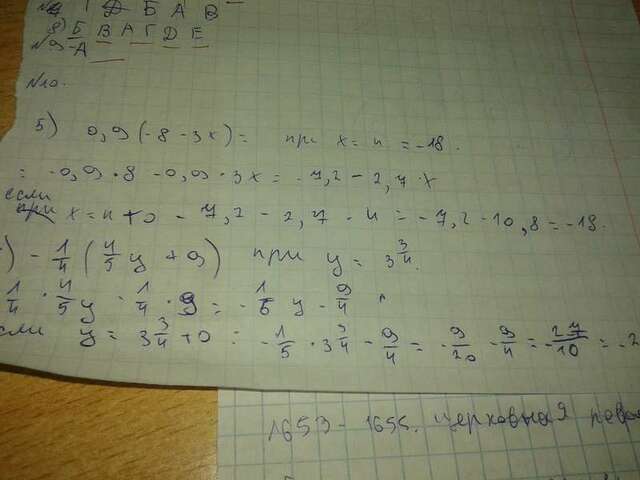 Б А В
8) Б В А Г Д Е
№9 А
№10.
5) 0,9(-8-3x)= при x=4 =-18.
= -0,9·8-0,9·3x=-7,2-2,7·x
если при x=4 то -7,2-2,7·4=-7,2-10,8=-18.
) -1/4 (4/5 y+9) при y=3 3/4.
1/4·4/5 y-1/4·9=-1/5 y-9/4
если y=3 3/4 то = -1/5·3 3/4-9/4=-9/20-9/4=-27/10=-2
1653-1655. церковная